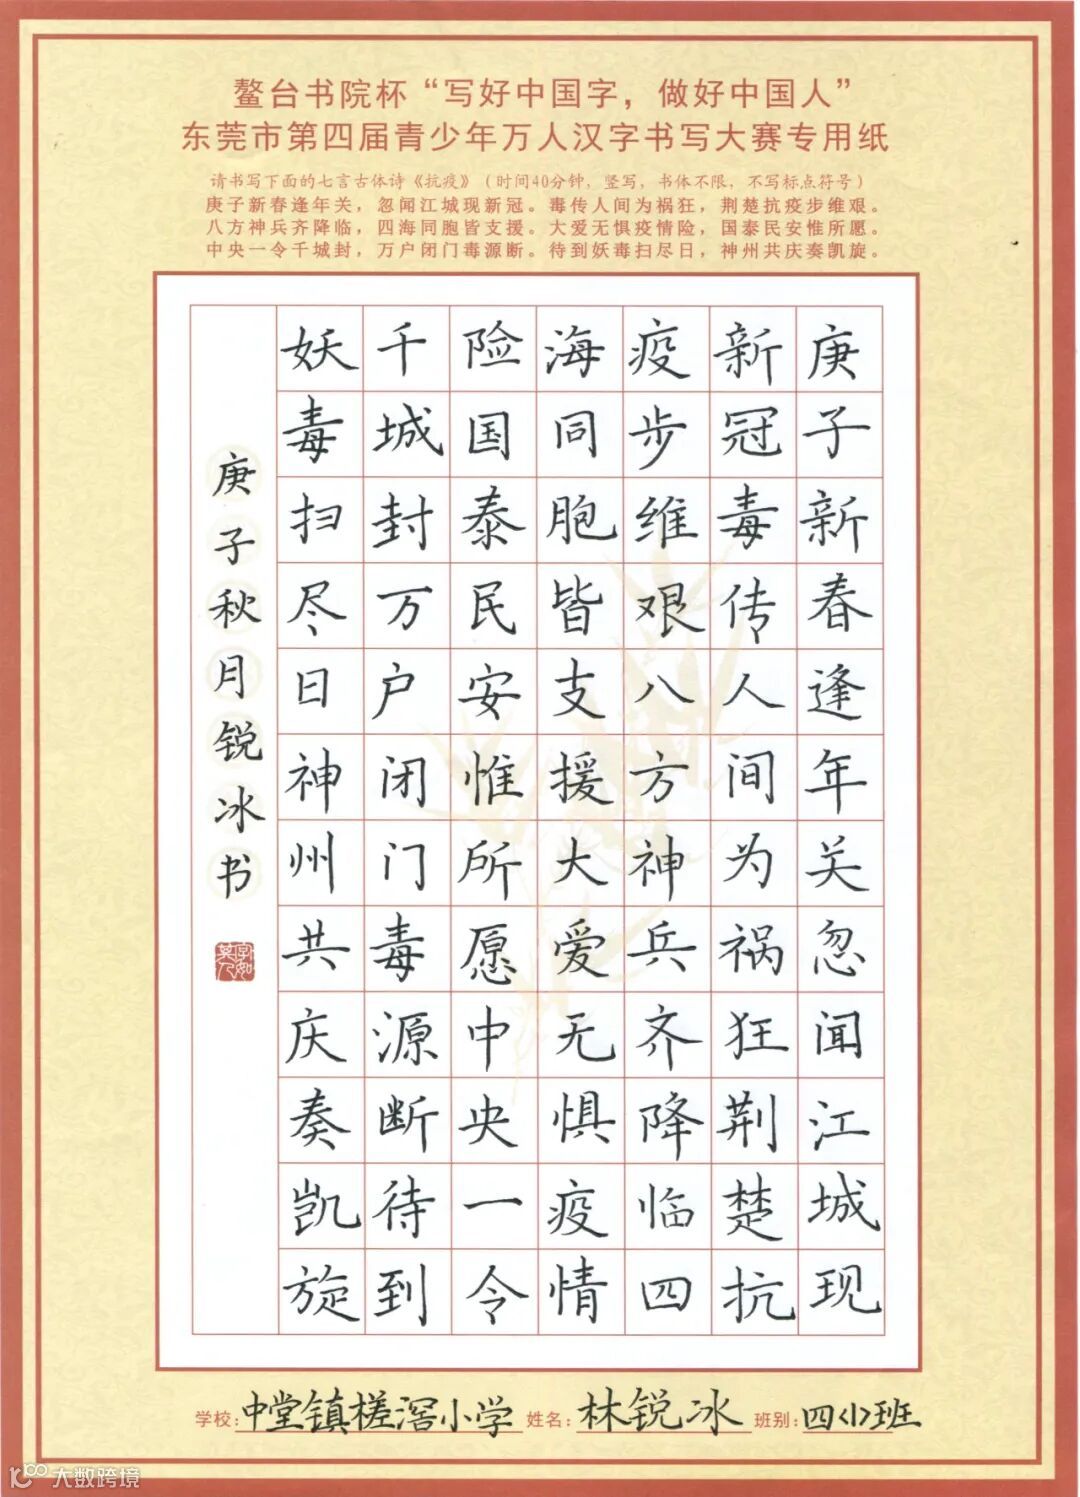 鳌台书院杯“写好中国字，做好中国人”
东莞市第四届青少年万人汉字书写大赛专用纸
请书写下面的七言古体诗《抗疫》（时间40分钟，竖写，书体不限，不写标点符号）
庚子新春逢年关，忽闻江城现新冠。毒传人间为祸狂，荆楚抗疫步维艰。
八方神兵齐降临，四海同胞皆支援。大爱无惧疫情险，国泰民安惟所愿。
中央一令千城封，万户闭门毒源断。待到妖毒扫尽日，神州共庆奏凯旋。
庚子新春逢年关忽闻江城现
新冠毒传人间为祸狂荆楚抗
疫步维艰八方神兵齐降临四
海同胞皆支援大爱无惧疫情
险国泰民安惟所愿中央一令
千城封万户闭门毒源断待到
妖毒扫尽日神州共庆奏凯旋
庚子秋月锐冰书
学校：中堂镇槎滘小学 姓名：林锐冰 班别：四〈1〉班
大数跨境